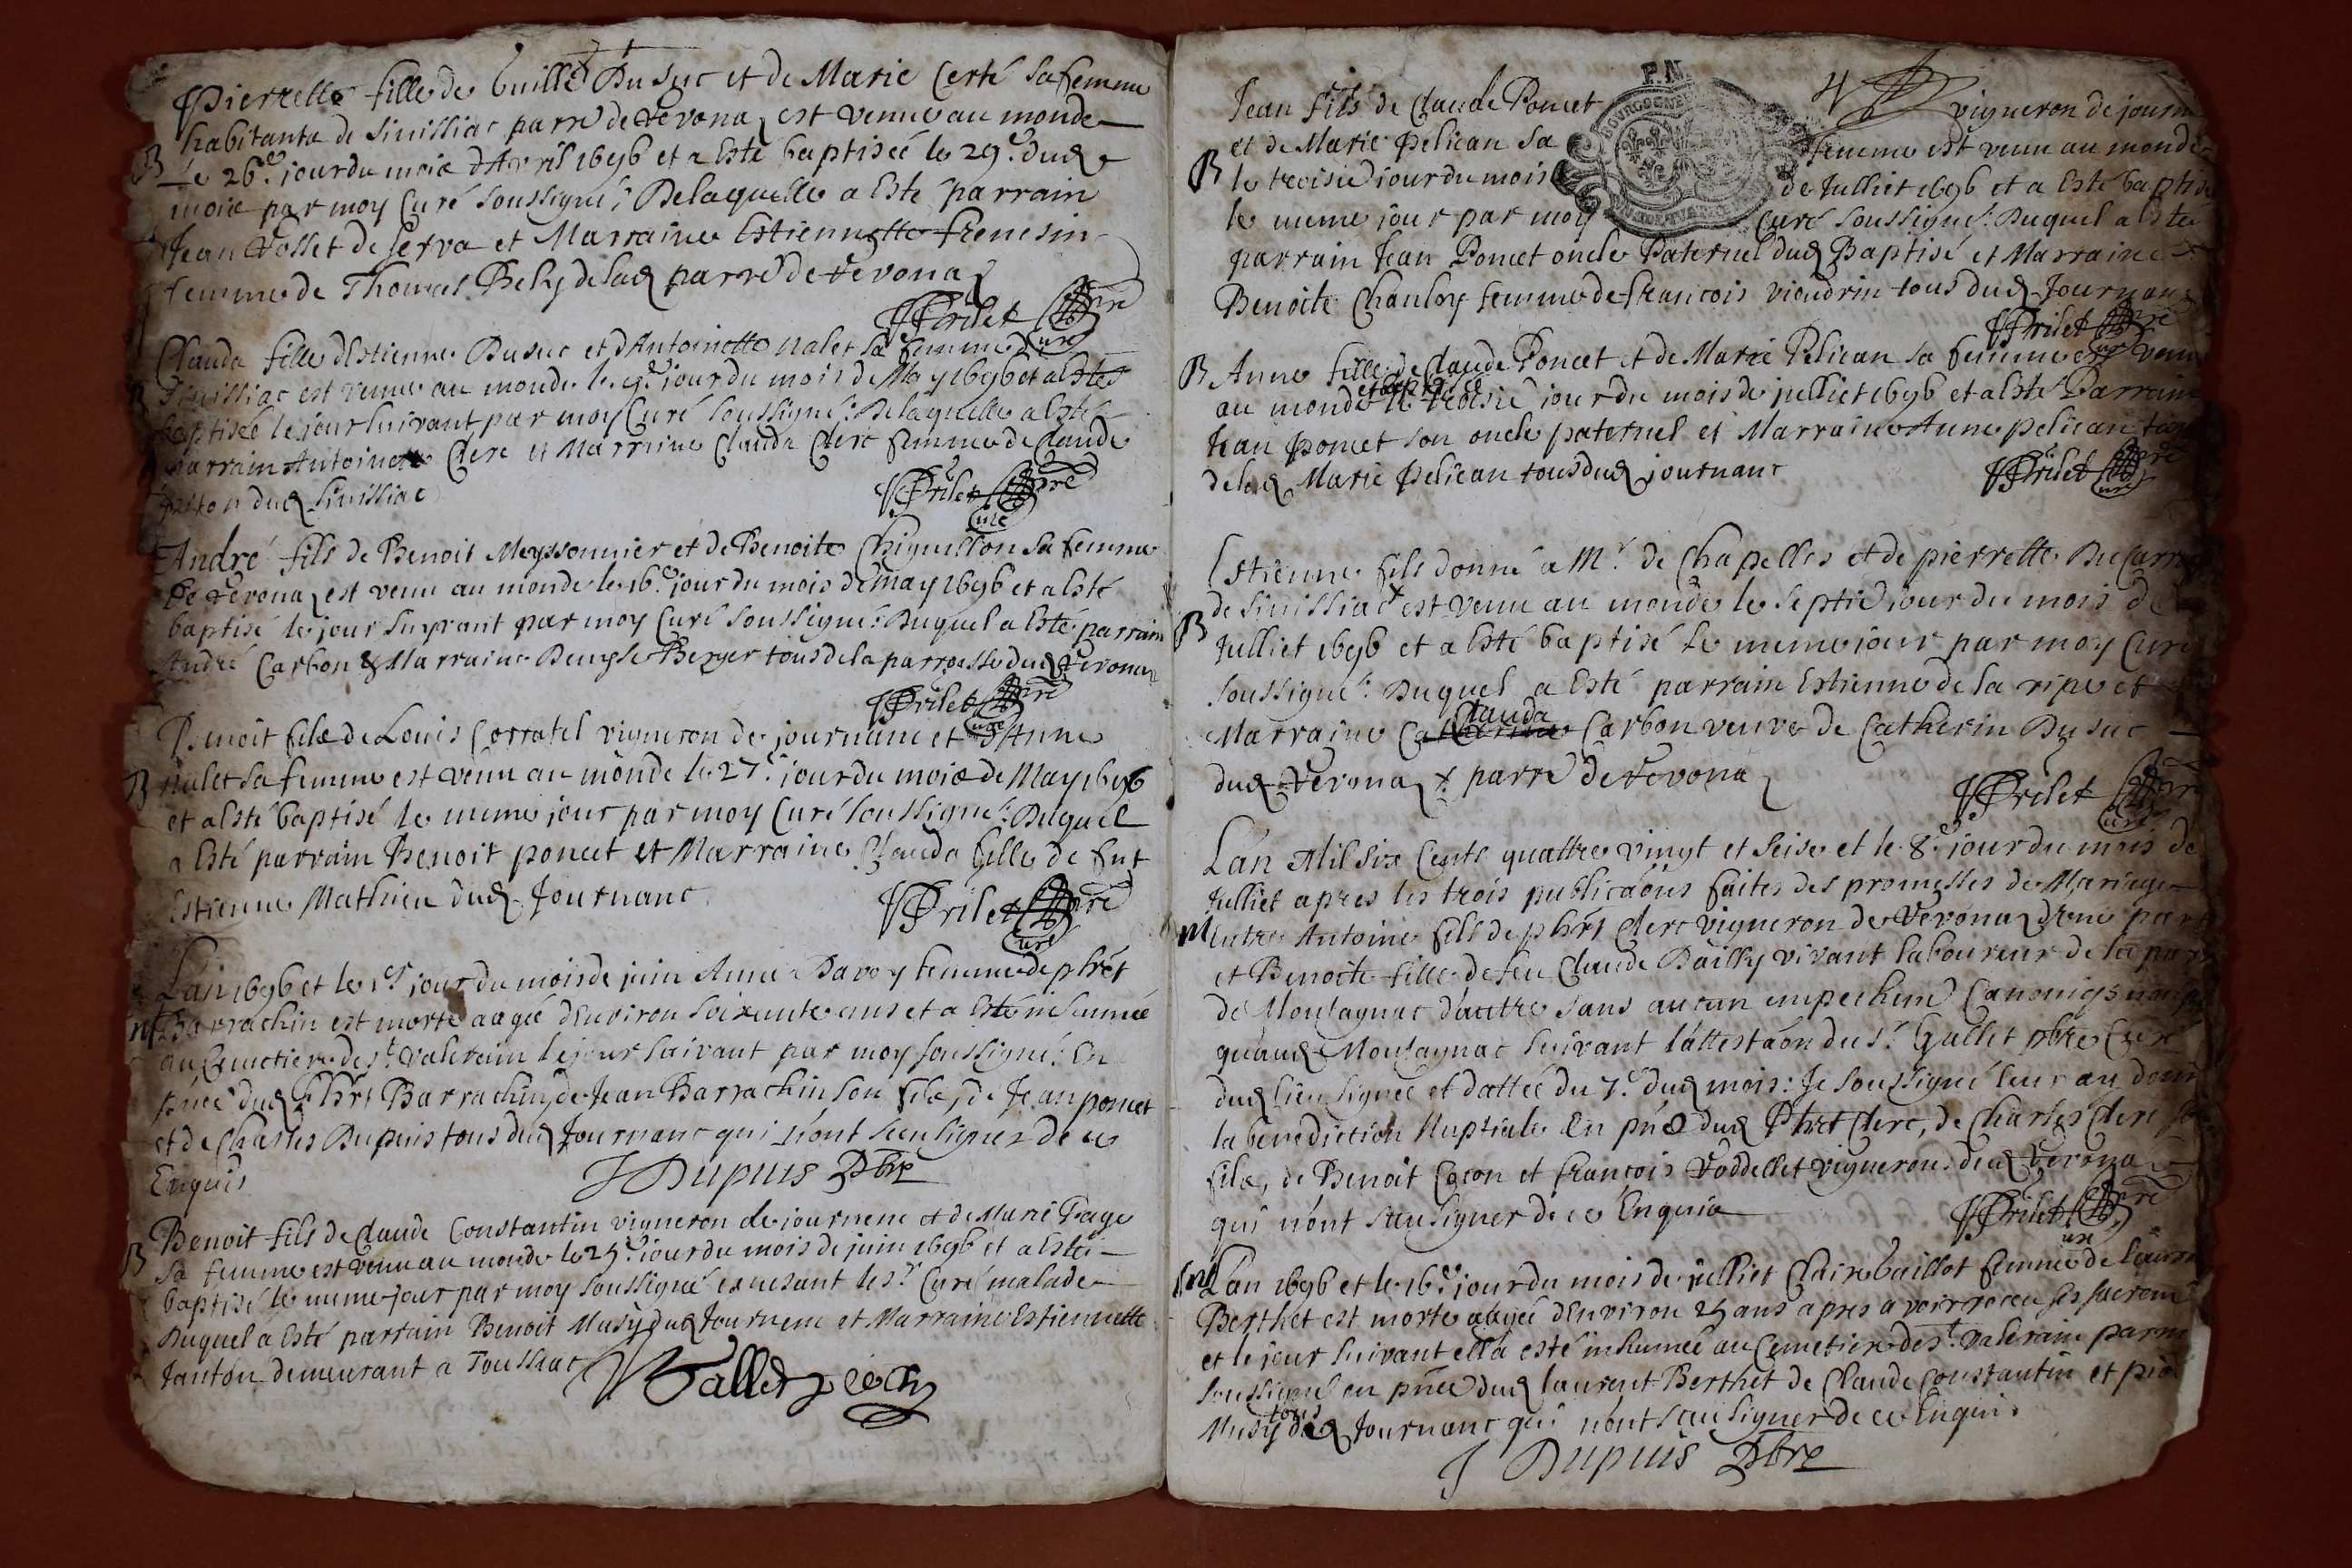 Pierrette fille de Guille Dusuc et de Marie Certé sa femme
habitants de Siuilliac parre de Veronaz est venue au monde
B le 26e jour du mois d'Avril 1696 et a Esté baptisée le 29e dud
mois par moy Curé soussigné: De laquelle a Esté parrain
Jean Vosset de et Marraine Estiennette
femme de Thomas Bely de lad parre de Veronaz
Prilet pre
Curé
Clauda fille d'Estienne Dusuc et d'Antoinette nalet sa femme de
Siuilliac est venue au monde le 9e jour du mois de May 1696 et a Esté
baptisée le jour suivant par moy Curé soussigné: De laquelle a Esté
parrain Antoine Clerc et Marraine Clauda Clerc femme de Claude
dud Siuilliac
Prilet pre
Curé
André fils de Benoit Meyssonnier et de Benoite Chiquillon sa femme
de Veronaz est venu au monde le 16e jour du mois de May 1696 et a Esté
baptisé le jour suyvant par moy Curé soussigné: Duquel a Esté parrain
André Carbon & Marraine Denyse Berger tous de la parroisse dud Veronaz
Prilet pre
Curé
Benoit fils de Louis Corratel vigneron de journanc et d'Anne
B nalet sa femme est venu au monde le 27e jour du mois de May 1696
et a Esté baptisé le meme jour par moy Curé soussigné: Duquel
a Esté parrain Benoit poncet et Marraine Clauda fille de fut
Estienne Mathieu dud Journanc
Prilet pre
Curé
L'an 1696 et le 1er jour du mois de juin Anne Davoy femme de phret
M Barrachin est morte aagée d'Environ soixante ans et a Esté inhumée
au Cemetiere de st Valerain le jour suivant par moy soussigné: En
pnce dud Phrt Barrachin, de Jean Barrachin son fils, de Jean poncet
et de Charles Dupuis tous dud Journanc qui n'ont sceu signer de ce
Enquis
J Dupuis Pbre
Benoit fils de Claude Constantin vigneron de journenc et de Marie Page
B sa femme est venu au monde le 25e jour du mois de juin 1696 et a Esté
baptisé le meme jour par moy soussigné en cusant le sr Curé malade
Duquel a Esté parrain Benoit Musy dud Journenc et Marraine Estiennette
Janton demeurant a Toussiac
Gallet
P.N.
BOURGOGNE
4
Jean fils de Claude Poncet vigneron de journ
et de Marie Pelican sa femme est venu au monde
B le troisie jour du mois de Julliet 1696 et a Esté baptisé
le meme jour par moy Curé soussigné: Duquel a Esté
parrain Jean Poncet oncle Paternel dud Baptisé et Marraine
Benoite Chanloy femme de francois Vieudrin tous dud Journanc
Prilet pre
Curé
B Anne fille de Claude Poncet et de Marie Pelican sa femme est venue
et baptisée
au monde le troisie jour du mois de julliet 1696 et a Esté Parrain
Jean Poncet son oncle paternel et Marraine Anne pelican
de lad Marie Pelican tous dud journanc
Prilet pre
Curé
Estienne fils donné a Mr de Chapelles et de pierrette
de Siuilliac x est venu au monde le septie jour du mois de
B Julliet 1696 et a Esté baptisé le meme jour par moy Curé
soussigné: Duquel a Esté parrain Estienne de la ripe et
Clauda
Marraine Catherine Carbon veuve de Catherin Dusuc
dud Veronaz x parre de Veronaz
Prilet pre
Curé
L'an Mil six Cents quattre vingt et seise et le 8e jour du mois de
Julliet apres les trois publicaons faites des promesses de Mariage
M Entre Antoine fils de phrt Clerc vigneron de Veronaz d'une part
et Benoite fille de feu Claude Bailly vivant laboureur de la parre
de Montagnac d'autre sans aucun empechemt Canonig
quaud Montagnac suivant l'attestaon du sr Gallet pbre Curé
dud lieu signée et dattée du 7e dud mois: Je soussigné leur ay donné
la benediction Nuptiale En pnce dud Phret Clerc, de Charles Clerc
fils, de Benoit Cocon et francois Voddellet vignerons dud Verona
qui n'ont sceu signer de ce Enquis
Prilet pre
Curé
M L'an 1696 et le 16e jour du mois de julliet Claire baillot femme de Laurent
Berthet est morte aagée d'Environ 25 ans apres avoir receu ses sacrem
et le jour suivant ella esté inhumée au Cemetiere de st Valerain par m
soussigné en pnce dud laurent Berthet de Claude Constantin et
tous
Musy dud Journanc qui n'ont sceu signer de ce Enquis
J Dupuis Pbre